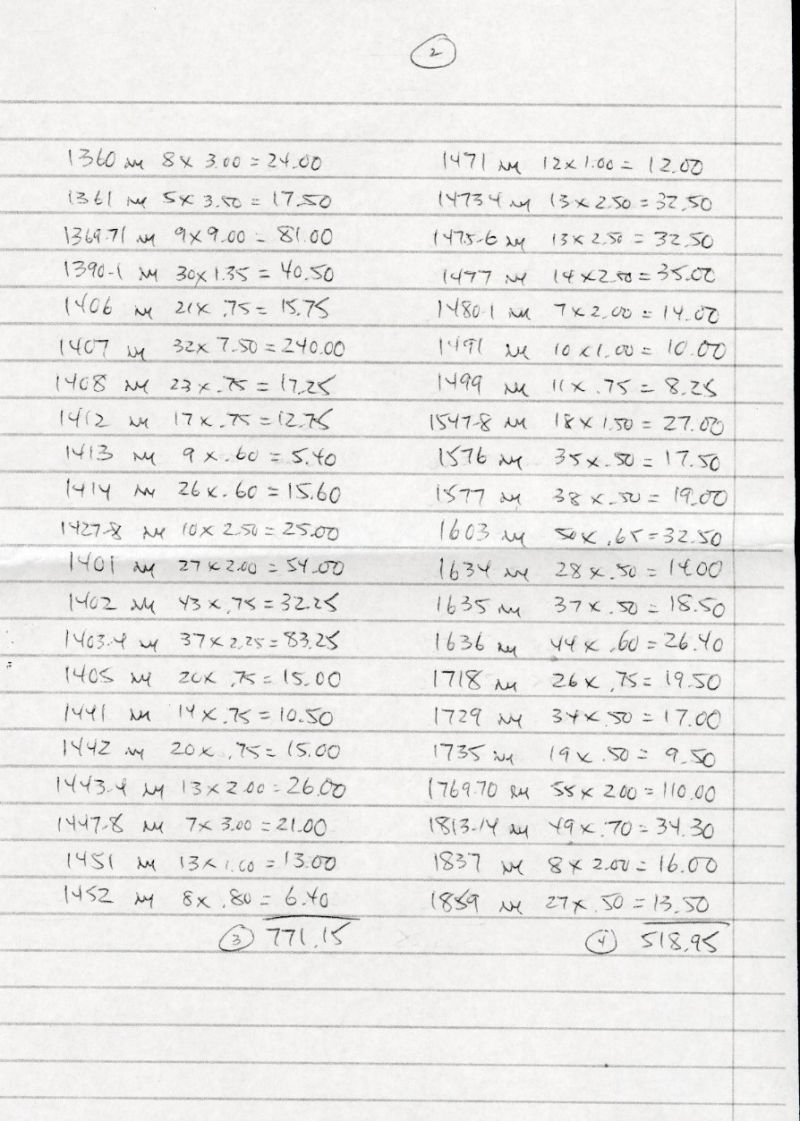 2
1360 NH 8 x 3.00 = 24.00
1361 NH 5 x 3.50 = 17.50
1369-71 NH 9 x 9.00 = 81.00
1390-1 NH 30 x 1.35 = 40.50
1406 NH 21 x .75 = 15.75
1407 NH 32 x 7.50 = 240.00
1408 NH 23 x .75 = 17.25
1412 NH 17 x .75 = 12.75
1413 NH 9 x .60 = 5.40
1414 NH 26 x .60 = 15.60
1427-8 NH 10 x 2.50 = 25.00
1401 NH 27 x 2.00 = 54.00
1402 NH 43 x .75 = 32.25
1403-4 NH 37 x 2.25 = 83.25
1405 NH 20 x .75 = 15.00
1441 NH 14 x .75 = 10.50
1442 NH 20 x .75 = 15.00
1443-4 NH 13 x 2.00 = 26.00
1447-8 NH 7 x 3.00 = 21.00
1451 NH 13 x 1.00 = 13.00
1452 NH 8 x .80 = 6.40
3 771.15
1471 NH 12 x 1.00 = 12.00
1473-4 NH 13 x 2.50 = 32.50
1475-6 NH 13 x 2.50 = 32.50
1477 NH 14 x 2.50 = 35.00
1480-1 NH 7 x 2.00 = 14.00
1491 NH 10 x 1.00 = 10.00
1499 NH 11 x .75 = 8.25
1547-8 NH 18 x 1.50 = 27.00
1576 NH 35 x .50 = 17.50
1577 NH 38 x .50 = 19.00
1603 NH 50 x .65 = 32.50
1634 NH 28 x .50 = 14.00
1635 NH 37 x .50 = 18.50
1636 NH 44 x .60 = 26.40
1718 NH 26 x .75 = 19.50
1729 NH 34 x .50 = 17.00
1735 NH 19 x .50 = 9.50
1769-70 NH 55 x 2.00 = 110.00
1813-14 NH 49 x .70 = 34.30
1837 NH 8 x 2.00 = 16.00
1859 NH 27 x .50 = 13.50
4 518.95